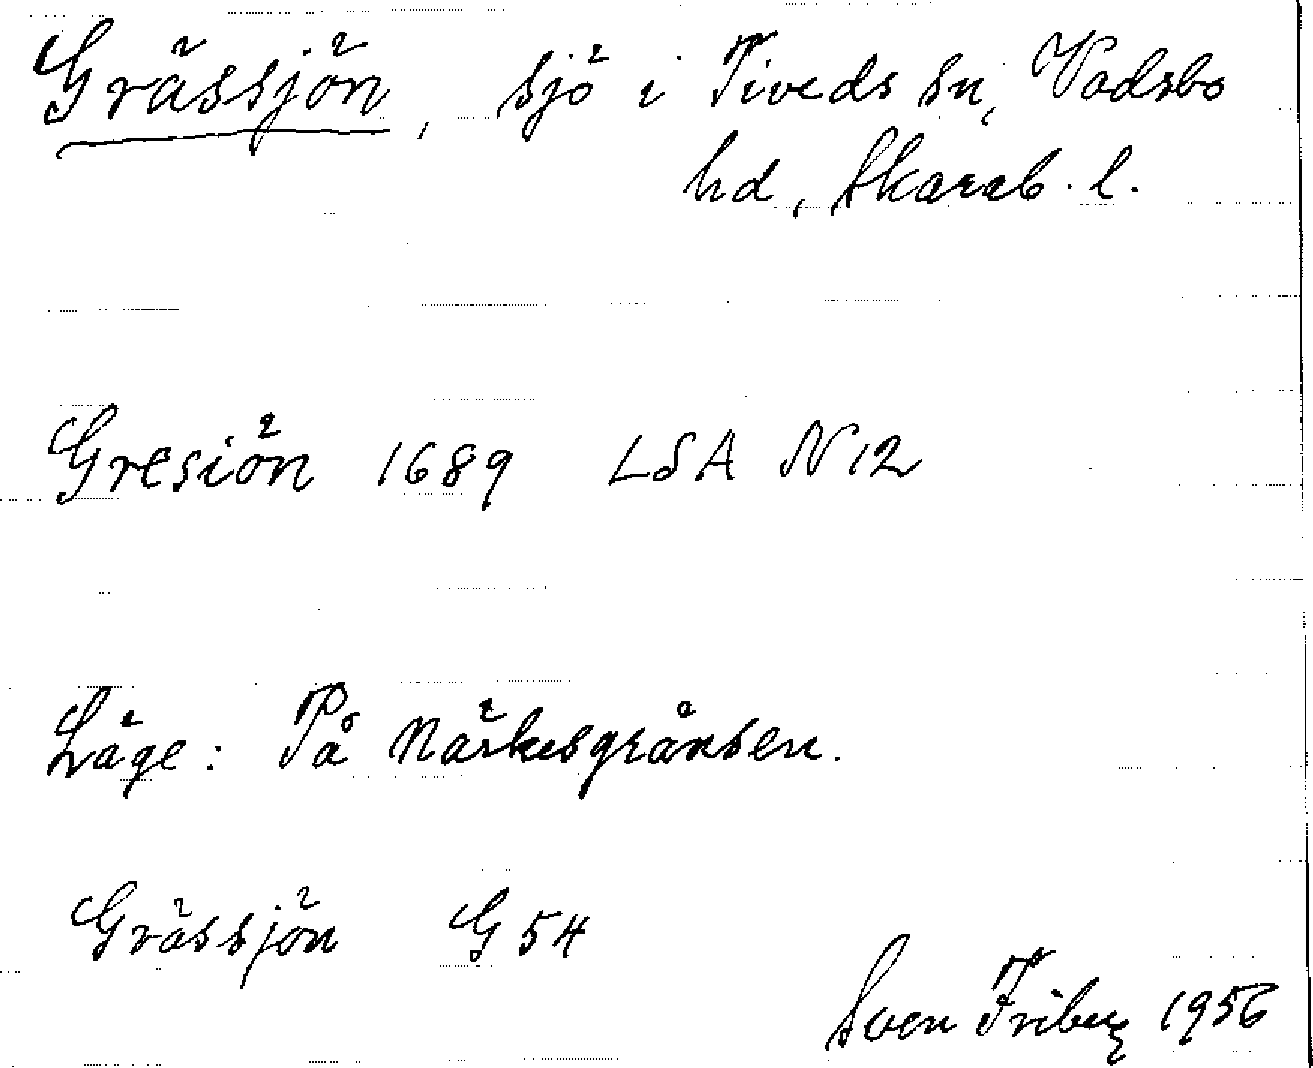 Grässjön, sjö i Tiveds sn, Vadsbo
hd, Skarab. l.
Gresiön 1689 LSA N12
Läge: På Närkesgränsen.
Grässjön G 54
Sven Friberg 1956